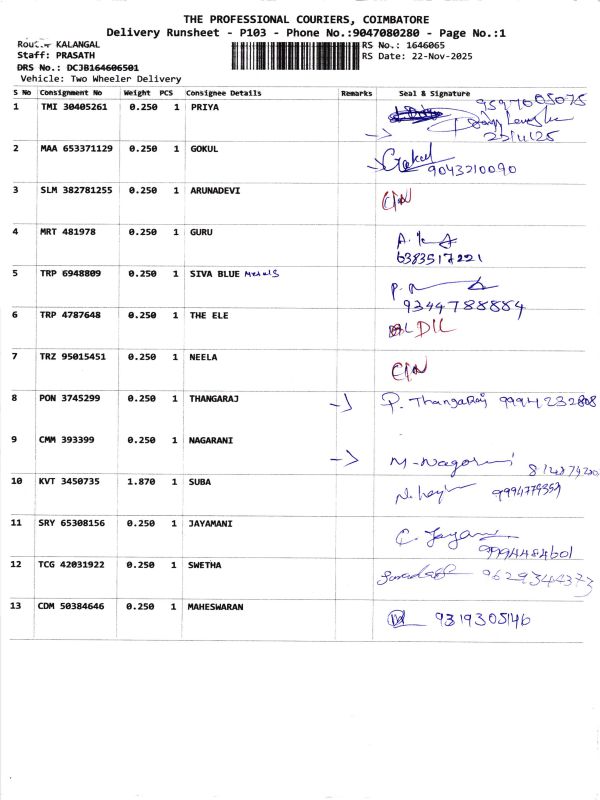 THE PROFESSIONAL COURIERS, COIMBATORE
Delivery Runsheet - P103 - Phone No.:9047080280 - Page No.:1
KALANGAL RS No.: 1646065
Staff: PRASATH RS Date: 22-Nov-2025
DRS No.: DCJB164606501
Vehicle: Two Wheeler Delivery
S No Consignment No Weight PCS Consignee Details Remarks Seal & Signature
1 TMI 30405261 0.250 1 PRIYA 9597005075
22/11/25
2 MAA 653371129 0.250 1 GOKUL Gokul
9043210090
3 SLM 382781255 0.250 1 ARUNADEVI
4 MRT 481978 0.250 1 GURU
6383517221
5 TRP 6948809 0.250 1 SIVA BLUE Metals
9344788884
6 TRP 4787648 0.250 1 THE ELE DIL
7 TRZ 95015451 0.250 1 NEELA
8 PON 3745299 0.250 1 THANGARAJ P. Thangaraj 9994232808
9 CMM 393399 0.250 1 NAGARANI
M-Nagorani
10 KVT 3450735 1.870 1 SUBA
11 SRY 65308156 0.250 1 JAYAMANI
9994484601
12 TCG 42031922 0.250 1 SWETHA 9629344373
13 CDM 50384646 0.250 1 MAHESWARAN 9319305146